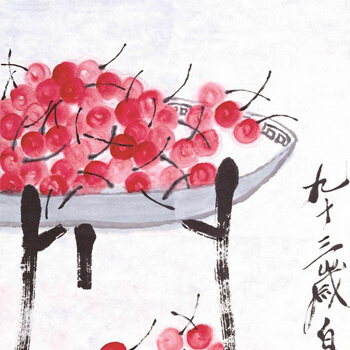 九十三歲白